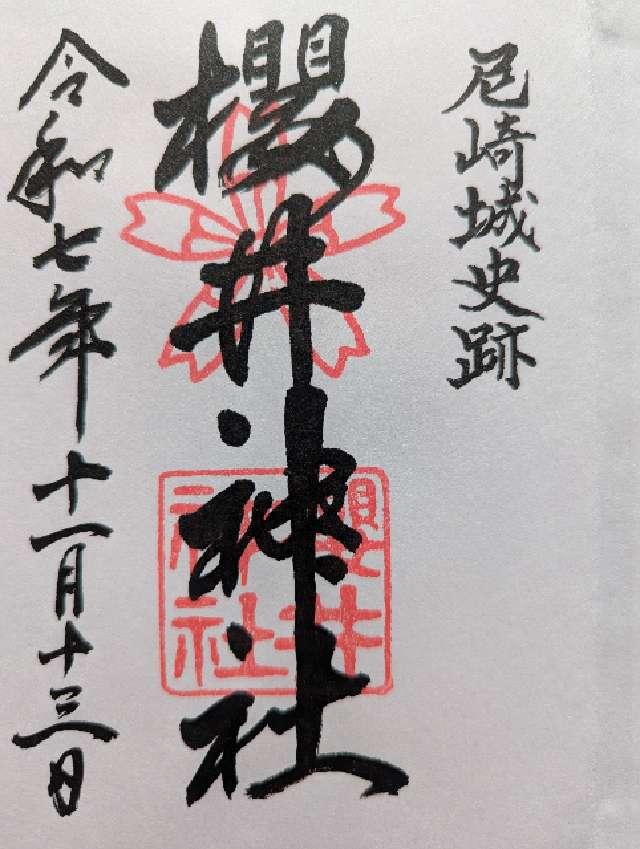 尼崎城史跡
櫻井神社
櫻井
神社
令和七年十一月十三日